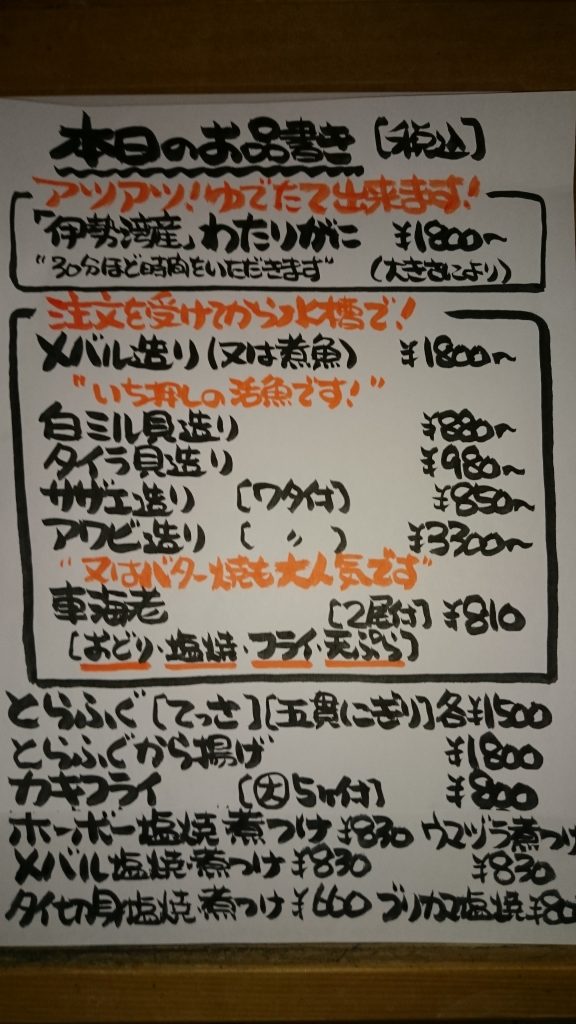 本日のお品書き [税込]
アツアツ!ゆでたて出来ます!
「伊勢湾産」わたりがに ¥1800~
"30分ほど時間をいただきます" (大きさにより)
注文を受けてから水槽で!
メバル造り(又は煮魚) ¥1800~
"いち押しの活魚です!"
白ミル貝造り ¥880~
タイラ貝造り ¥980~
サザエ造り [ワタ付] ¥850~
アワビ造り [ 〃 ] ¥3300~
"又はバター焼も大人気です"
車海老 [2尾付] ¥810
[おどり・塩焼・フライ・天ぷら]
とらふぐ[てっさ][五貫にぎり]各¥1500
とらふぐから揚げ ¥1800
カキフライ [大5ケ付] ¥800
ホーボー塩焼・煮つけ ¥830 ウマヅラ煮つけ
メバル塩焼・煮つけ ¥830 ¥830
タイ切身塩焼・煮つけ ¥660 ブリカマ塩焼